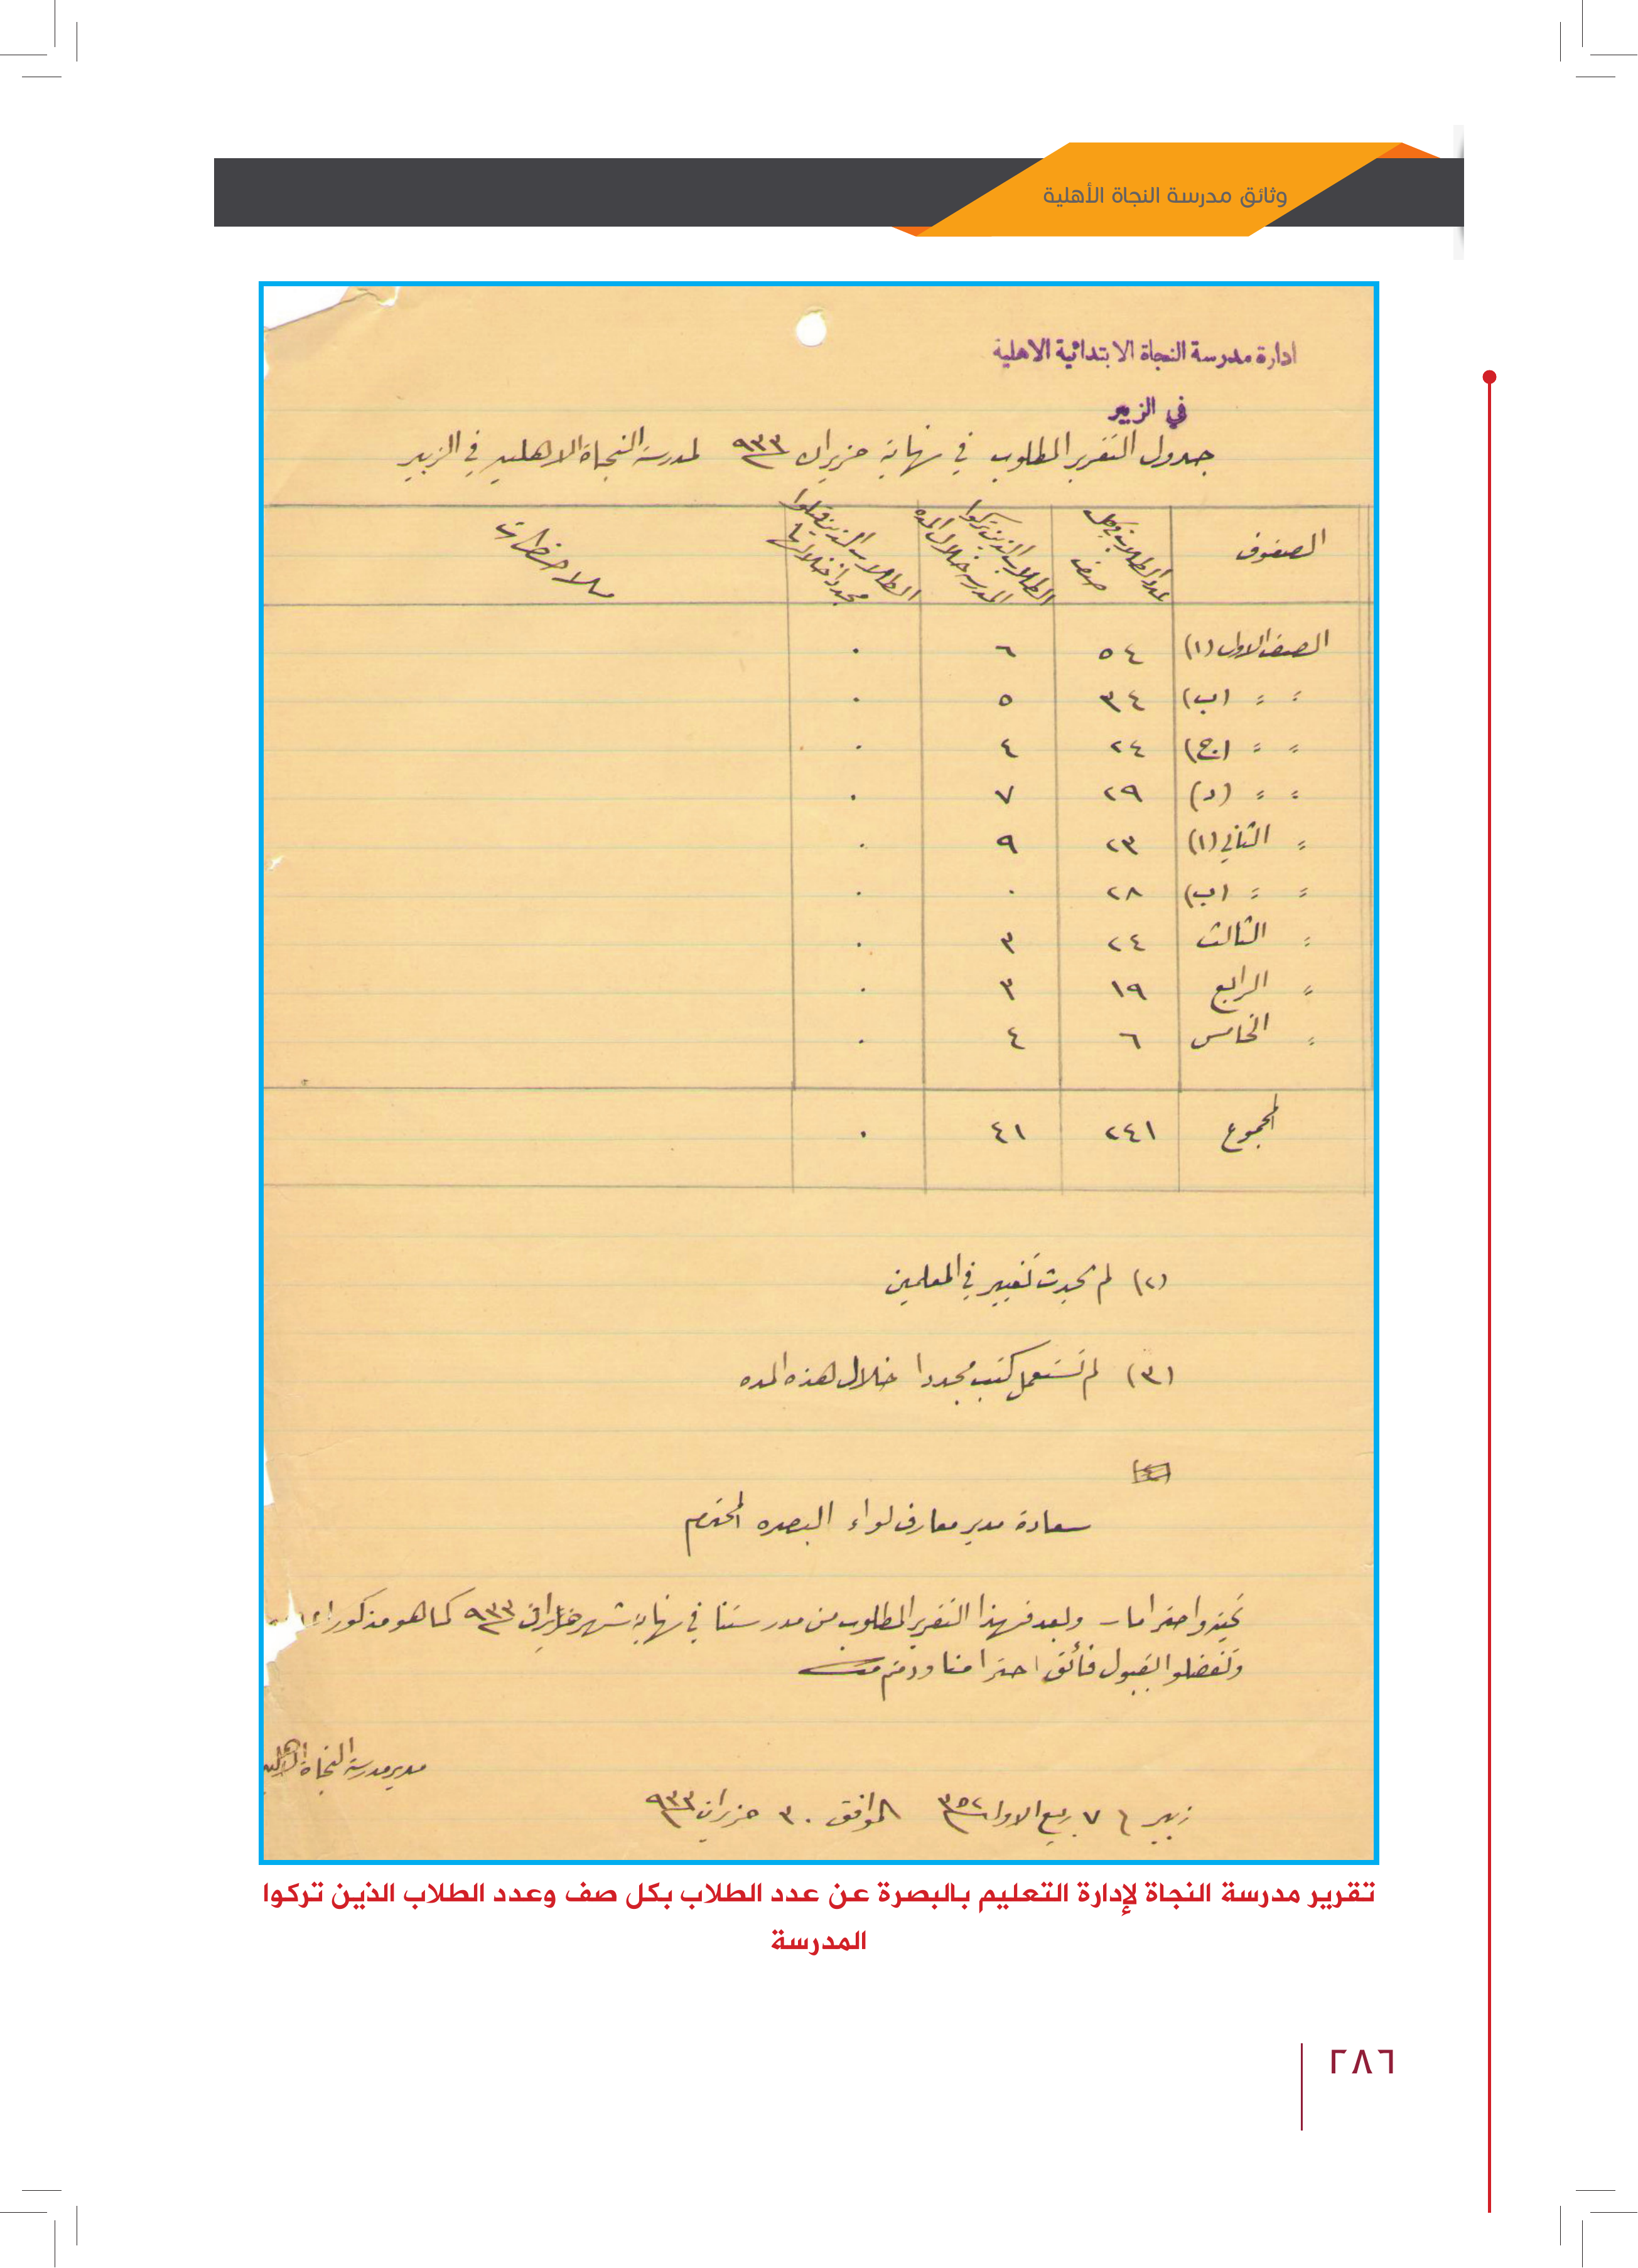 وثائق مدرسة النجاة الأهلية
ادارة مدرسة النجاة الابتدائية الاهلية
في الزبير
جدول التقرير المطلوب في نهاية حزيران ٩٣٣ لمدرسة النجاة الاهلية في الزبير
الصفوف عدد الطلاب في كل صف الطلاب الذين تركوا المدرسة خلال المده الطلاب الذين قبلوا مجددا خلالها ملاحظات
الصف الاول (ا) ٥٤ ٦ ٠
〃 〃 (ب) ٣٤ ٥ ٠
〃 〃 (ج) ٢٤ ٤ ٠
〃 〃 (د) ٢٩ ٧ ٠
〃 الثاني (ا) ٢٣ ٩ ٠
〃 〃 (ب) ٢٨ ٠ ٠
〃 الثالث ٢٤ ٣ ٠
〃 الرابع ١٩ ٣ ٠
〃 الخامس ٦ ٤ ٠
المجموع ٢٤١ ٤١ ٠
(٢) لم يحدث تغيير في المعلمين
(٣) لم تستعمل كتب مجددا خلال هذه المده
سعادة مدير معارف لواء البصره المحترم
تحية واحتراما وبعد فهذا التقرير المطلوب من مدرستنا في نهاية شهر حزيران ٩٣٣ كما هو مذكور
وتفضلوا بقبول فائق احترامنا ودمتم
مدير مدرسة النجاة الاهلية
زبير ٧ ربيع الاول ٣٥٢ الموافق ٣٠ حزيران ٩٣٣
تقرير مدرسة النجاة لإدارة التعليم بالبصرة عن عدد الطلاب بكل صف وعدد الطلاب الذين تركوا
المدرسة
٢٨٦